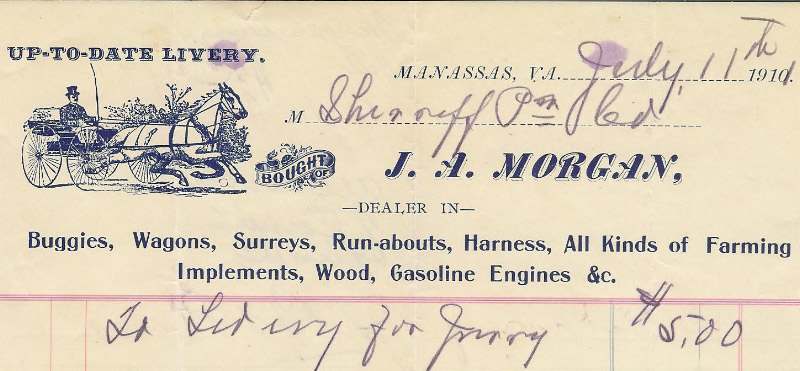 UP-TO-DATE LIVERY.
MANASSAS, VA. July, 11th 1911
M Sherriff Pm Co
BOUGHT OF
J. A. MORGAN,
—DEALER IN—
Buggies, Wagons, Surreys, Run-abouts, Harness, All Kinds of Farming
Implements, Wood, Gasoline Engines &c.
To Livery for Jurry $5,00